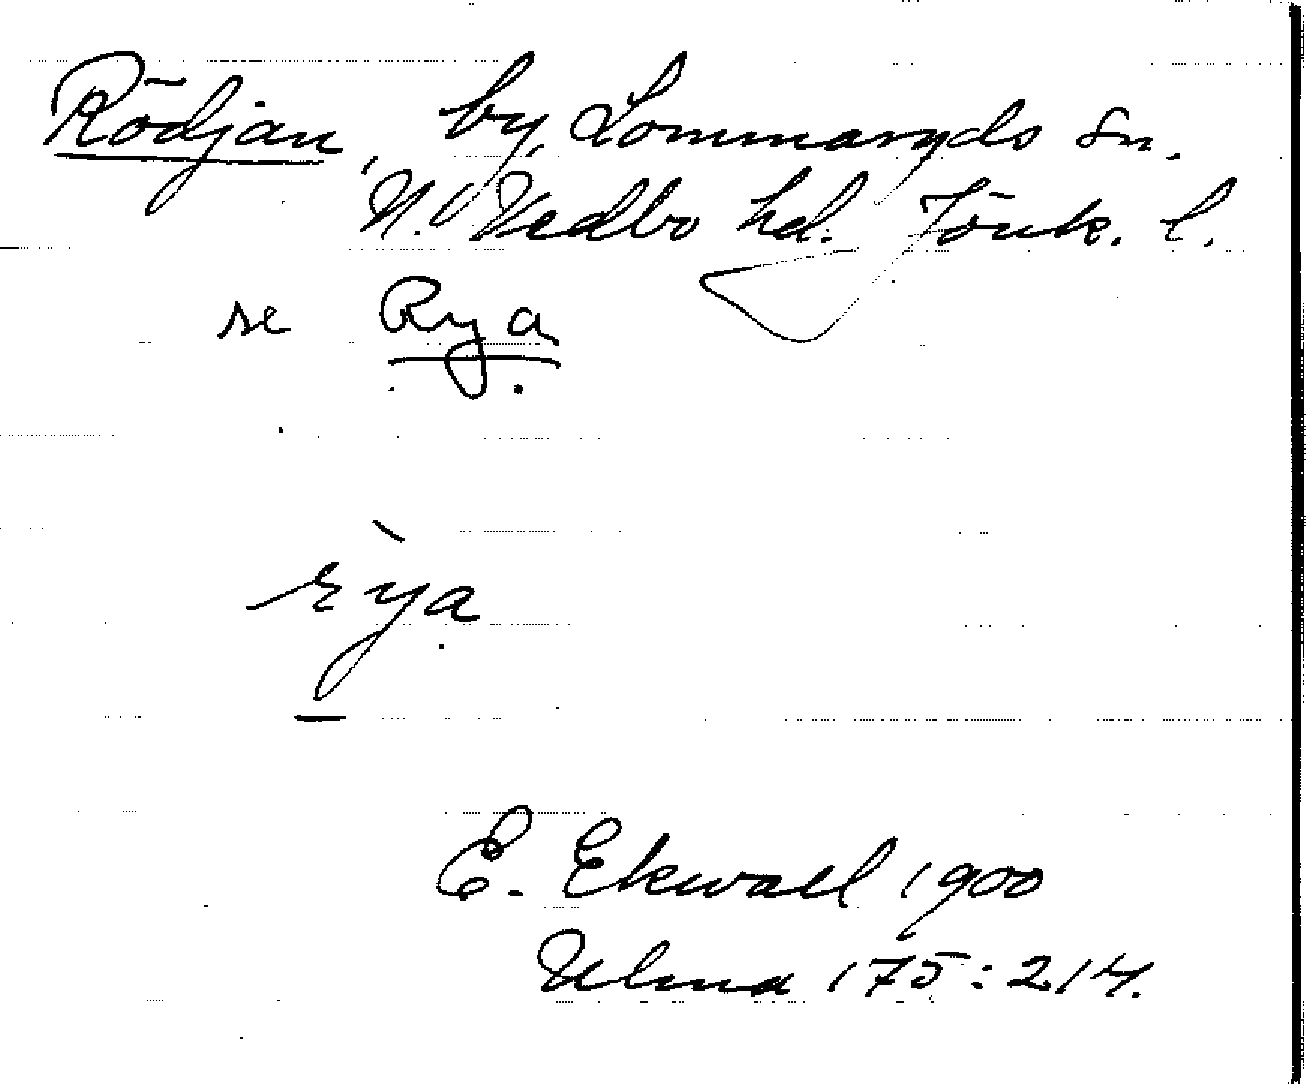 Rödjan, by, Lommaryds sn.
N. Vedbo hd. Jönk. l.
se Rya
rỳa
E. Ekwall 1900
Ulma 175:214.